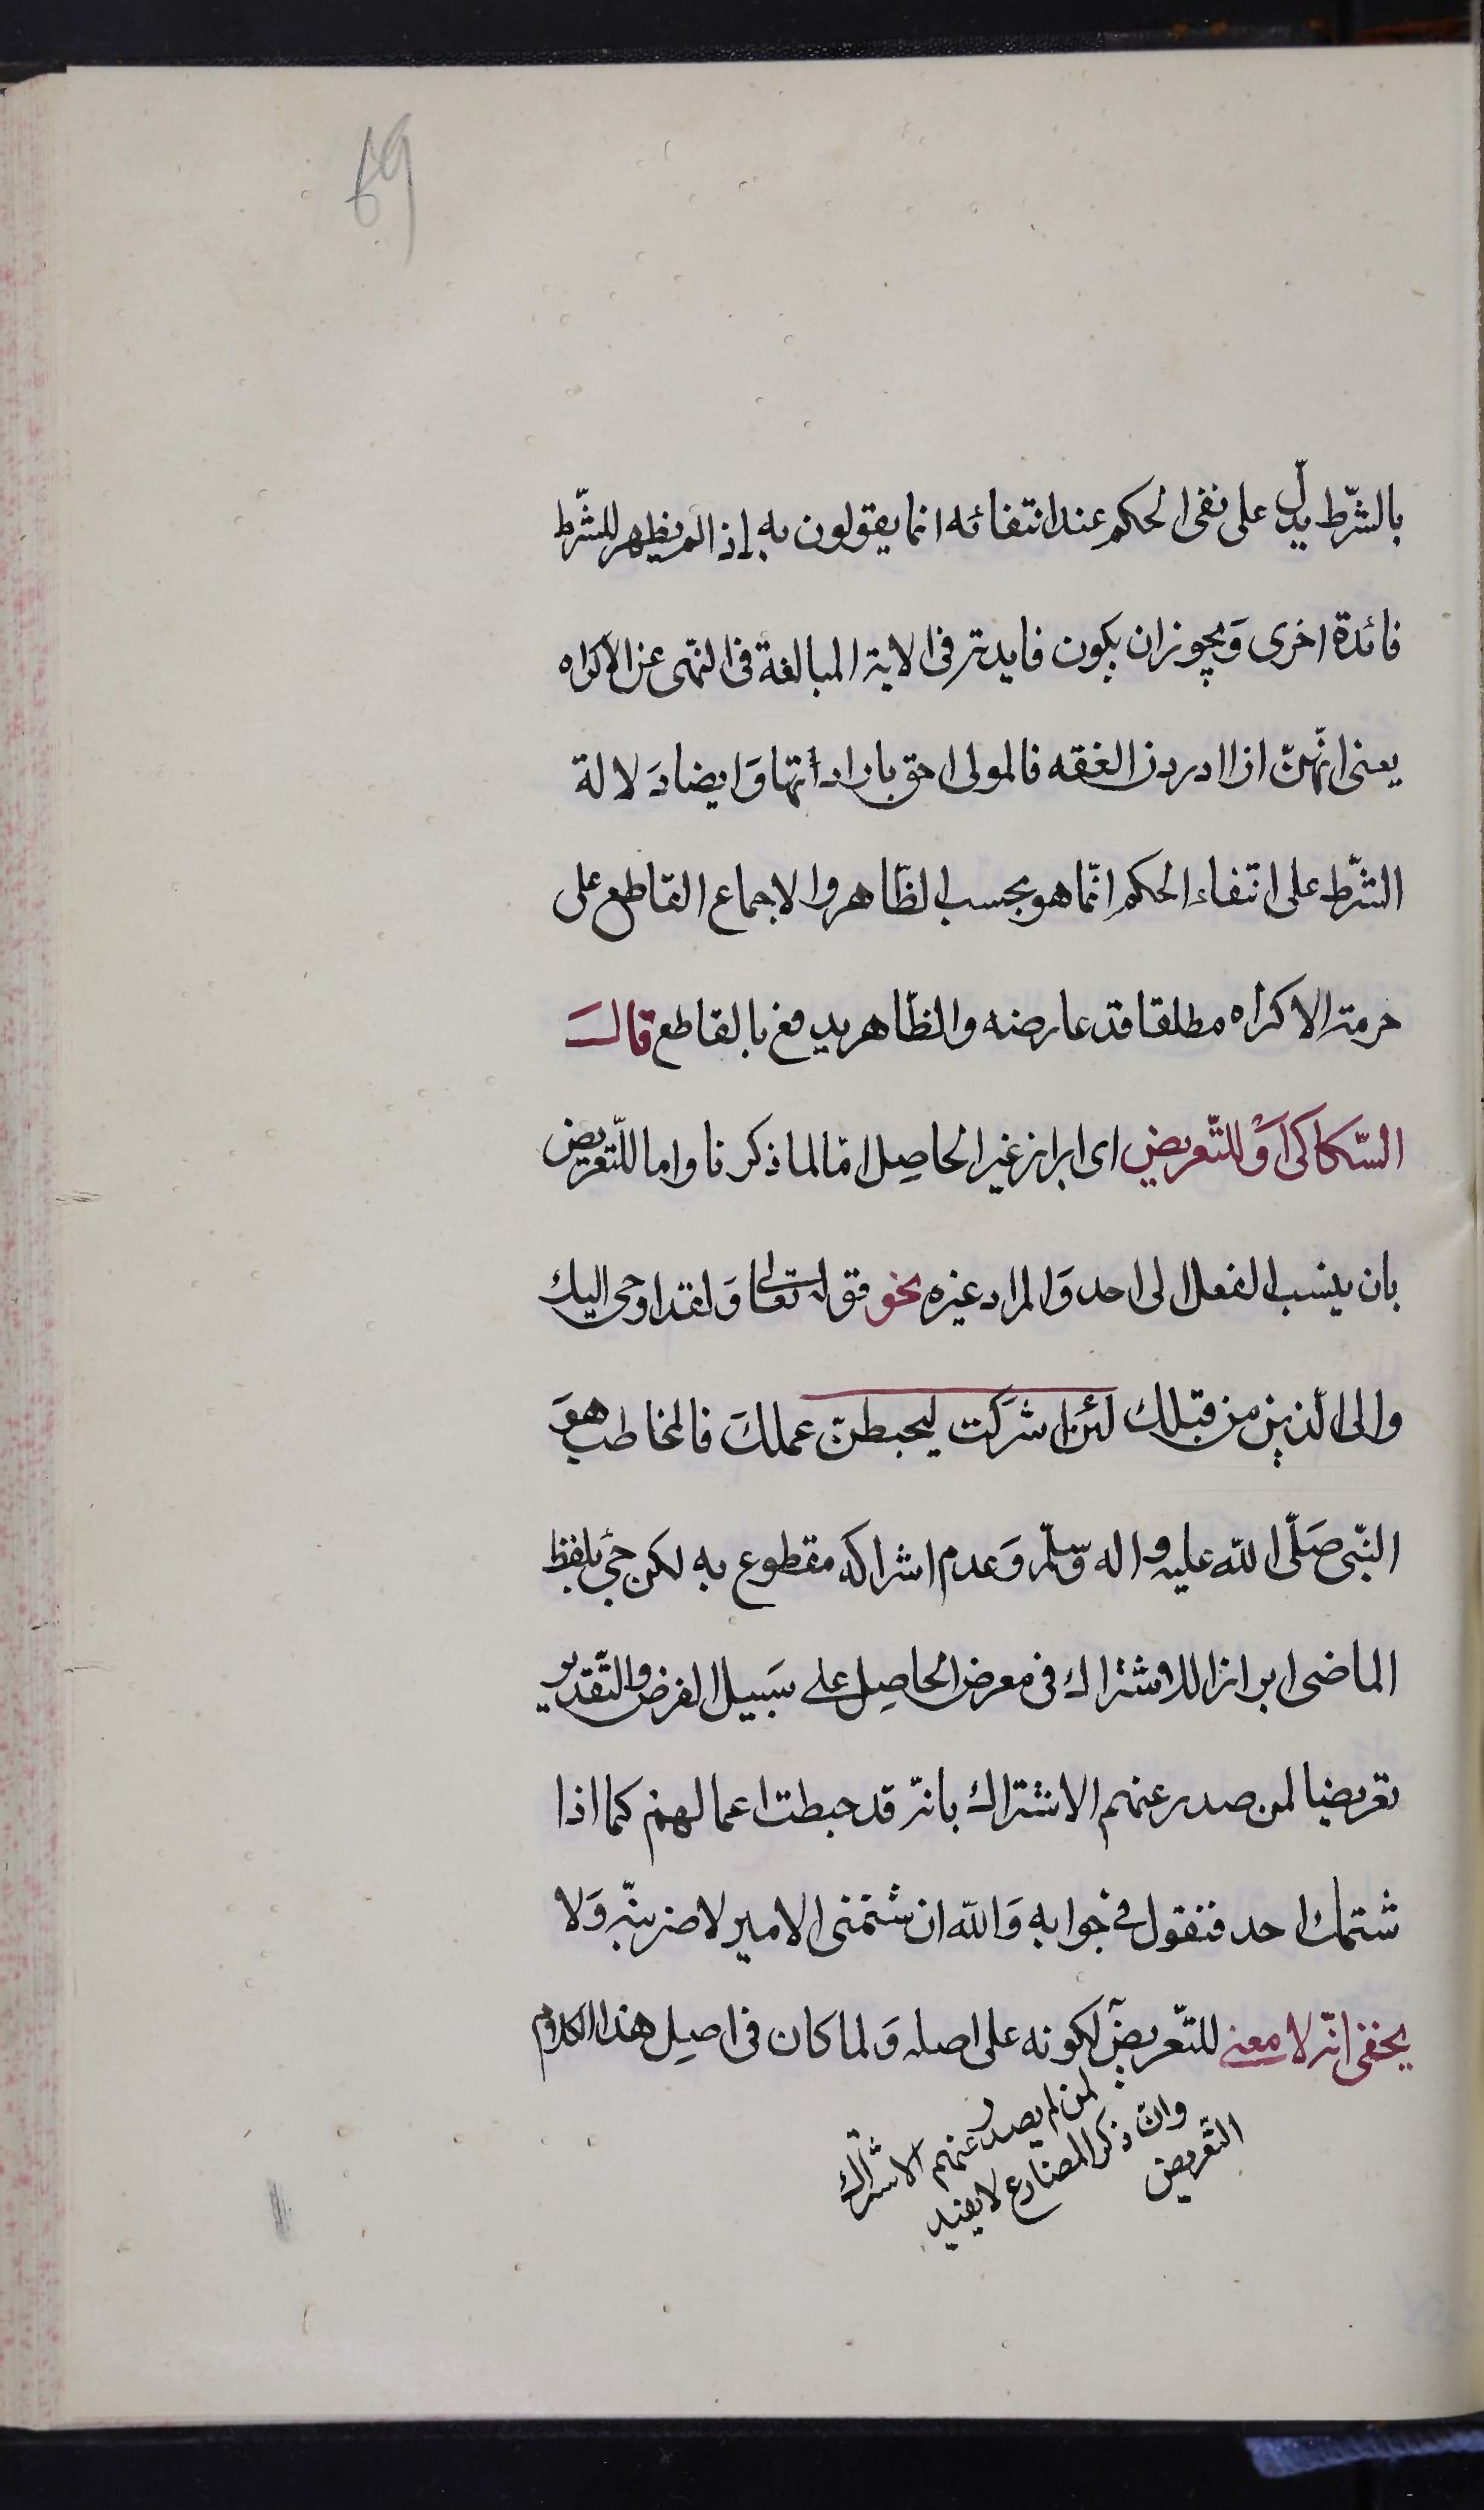 69
بالشّرط يدلّ على نفى الحكم عند انتفائه انما يقولون به إذا لم يظهر للشّرط
فائدة اخرى وَيجوز ان يكون فايدته فى الاية المبالغة فى النهى عن الاكراه
يعنى انّهنّ اذا اردن العفه فالمولى احق بارادتها وَايضا دَلالة
الشّرط على انتفاء الحكم انّما هو بحسب الظّاهر والاجماع القاطع على
حرمة الاكراه مطلقا قد عارضه والظّاهر يدفع بالقاطع قالَ
السّكاكى اوْ للتّعريض اى ابراز غير الحاصِل امّا لما ذكرنا واما للتّعريض
بان ينسب الفعل الى احد وَالمراد غيره نحو قوله تعالى وَلقد اوحى اليك
والى الّذين من قبلك لئن اشركت ليحبطنّ عملكَ فالمخاطب هوَ
النّبى صَلّى الله عليه واله وسلّم وَعدم اشراكه مقطوع به لكن جئ بلفظ
الماضى ابرازا للاشتراك فى معرض الحاصِل على سَبيل الفرض والتّقدير
تعريضا لمن صدر عنهم الاشتراك بانّه قد حبطت اعمالهم كما اذا
شتمك احد فتقول فى جوابه وَالله ان شتمنى الامير لاضربنّه وَلا
يخفى انّه لا معنى للتّعريض لكونه على اصله وَلما كان فى اصِل هذا الكلام
لمن لم يصدر عنهم الاشراك
وان ذكر المضارع لا يفيد
التعريض